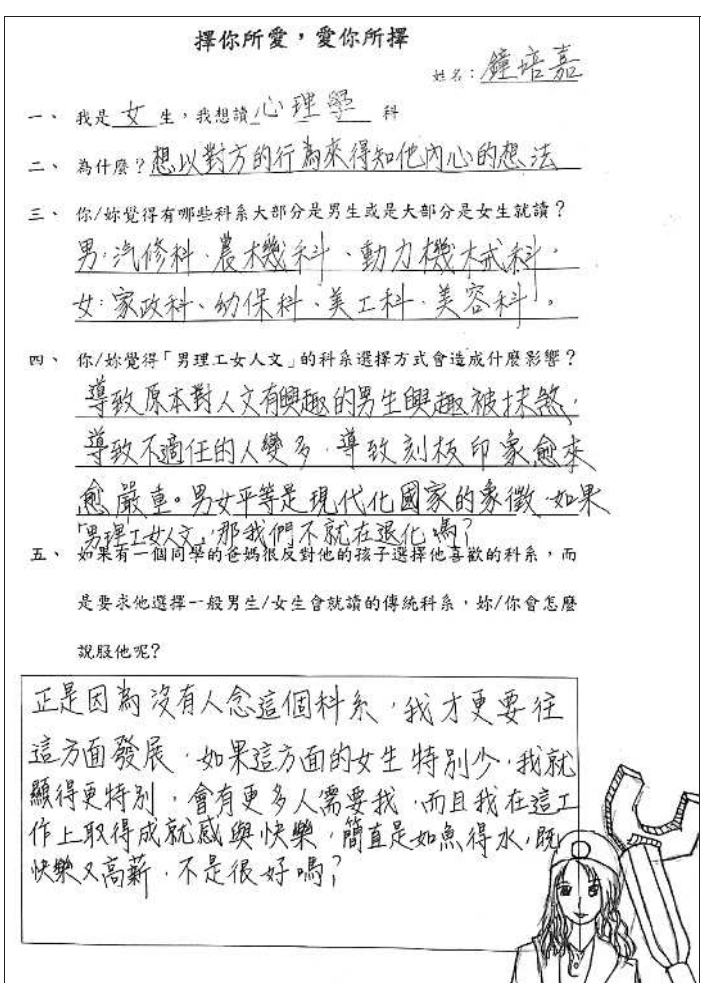 擇你所愛，愛你所擇
姓名：鐘培嘉
一、 我是 女 生，我想讀 心理學 科
二、 為什麼？想以對方的行為來得知他內心的想法
三、 你/妳覺得有哪些科系大部分是男生或是大部分是女生就讀？
男:汽修科、農機科、動力機械科，
女:家政科、幼保科、美工科、美容科。
四、 你/妳覺得「男理工女人文」的科系選擇方式會造成什麼影響？
導致原本對人文有興趣的男生興趣被抹煞，
導致不適任的人變多，導致刻板印象愈來
愈嚴重。男女平等是現代化國家的象徵，如果
「男理工女人文」，那我們不就在退化嗎?
五、 如果有一個同學的爸媽很反對他的孩子選擇他喜歡的科系，而
是要求他選擇一般男生/女生會就讀的傳統科系，妳/你會怎麼
說服他呢?
正是因為沒有人念這個科系，我才更要往
這方面發展，如果這方面的女生特別少，我就
顯得更特別，會有更多人需要我，而且我在這工
作上取得成就感與快樂，簡直是如魚得水，既
快樂又高薪，不是很好嗎?